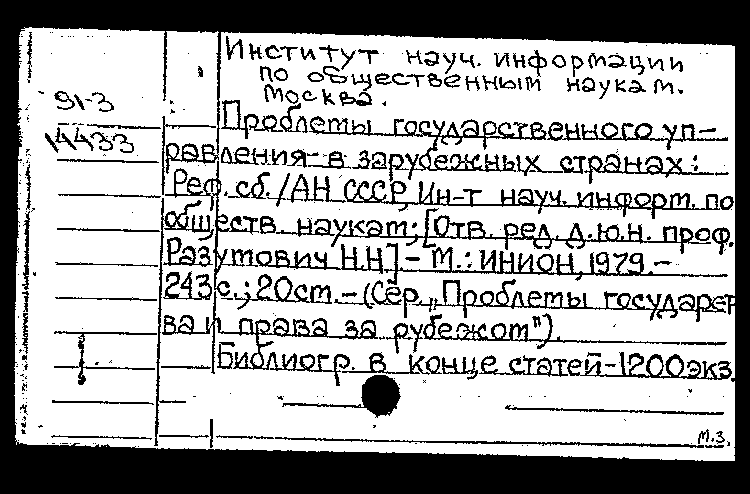 Институт науч. информации
по общественным наукам.
Москва.
91-3
14433
Проблемы государственного уп-
равления в зарубежных странах:
Реф. сб. /АН СССР, Ин-т науч. информ. по
обществ. наукам; [Отв. ред. д.ю.н. проф.
Разумович Н.Н.] - М.: ИНИОН, 1979. -
243 с.; 20 см. - (Сер. „Проблемы государст
ва и права за рубежом").
Библиогр. в конце статей - 1200 экз.
М.З.